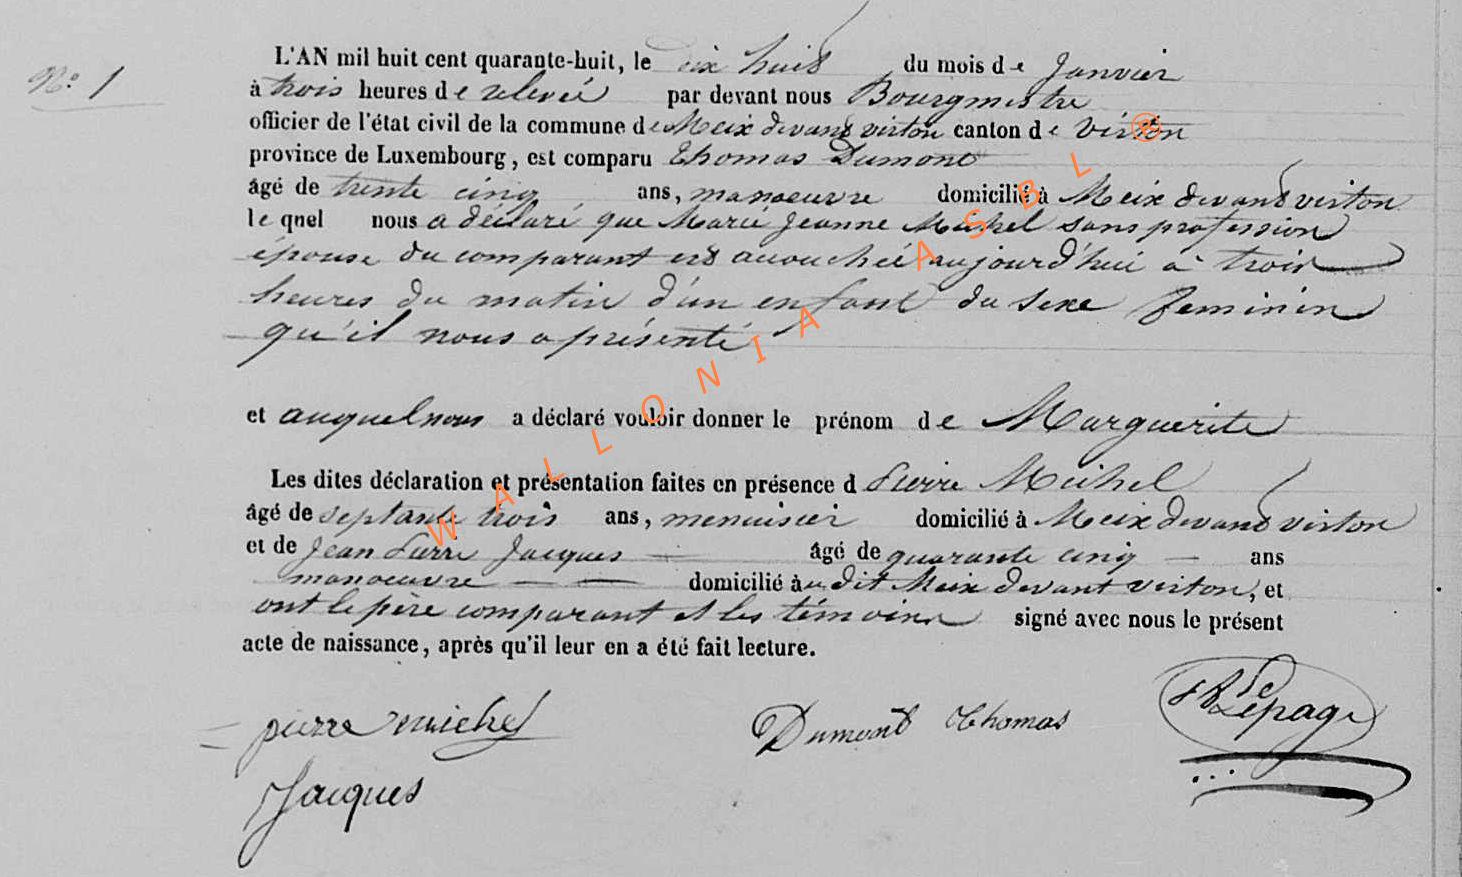 N.º 1
L'AN mil huit cent quarante-huit, le dix huit du mois de Janvier
à trois heures de relevée par devant nous Bourgmestre
officier de l'état civil de la commune de Meix devant virton canton de Virton
province de Luxembourg, est comparu Thomas Dumont
âgé de trente cinq ans, manoeuvre domicilié à Meix devant virton
lequel nous a déclaré que Marie Jeanne Michel sans profession
épouse du comparant est accouchée aujourd'hui à trois
heures du matin d'un enfant du sexe feminin
qu'il nous a présenté
et auquel nous a déclaré vouloir donner le prénom de Marguerite
Les dites déclaration et présentation faites en présence d Pierre Michel
âgé de septante trois ans, menuisier domicilié à Meix devant virton
et de Jean Pierre Jacques — âgé de quarante cinq — ans
manoeuvre — — domicilié au dit Meix devant virton, et
ont le père comparant et les témoins signé avec nous le présent
acte de naissance, après qu'il leur en a été fait lecture.
pierre michel Dumont Thomas Lepage
Jacques
WALLONIA ASBL ®